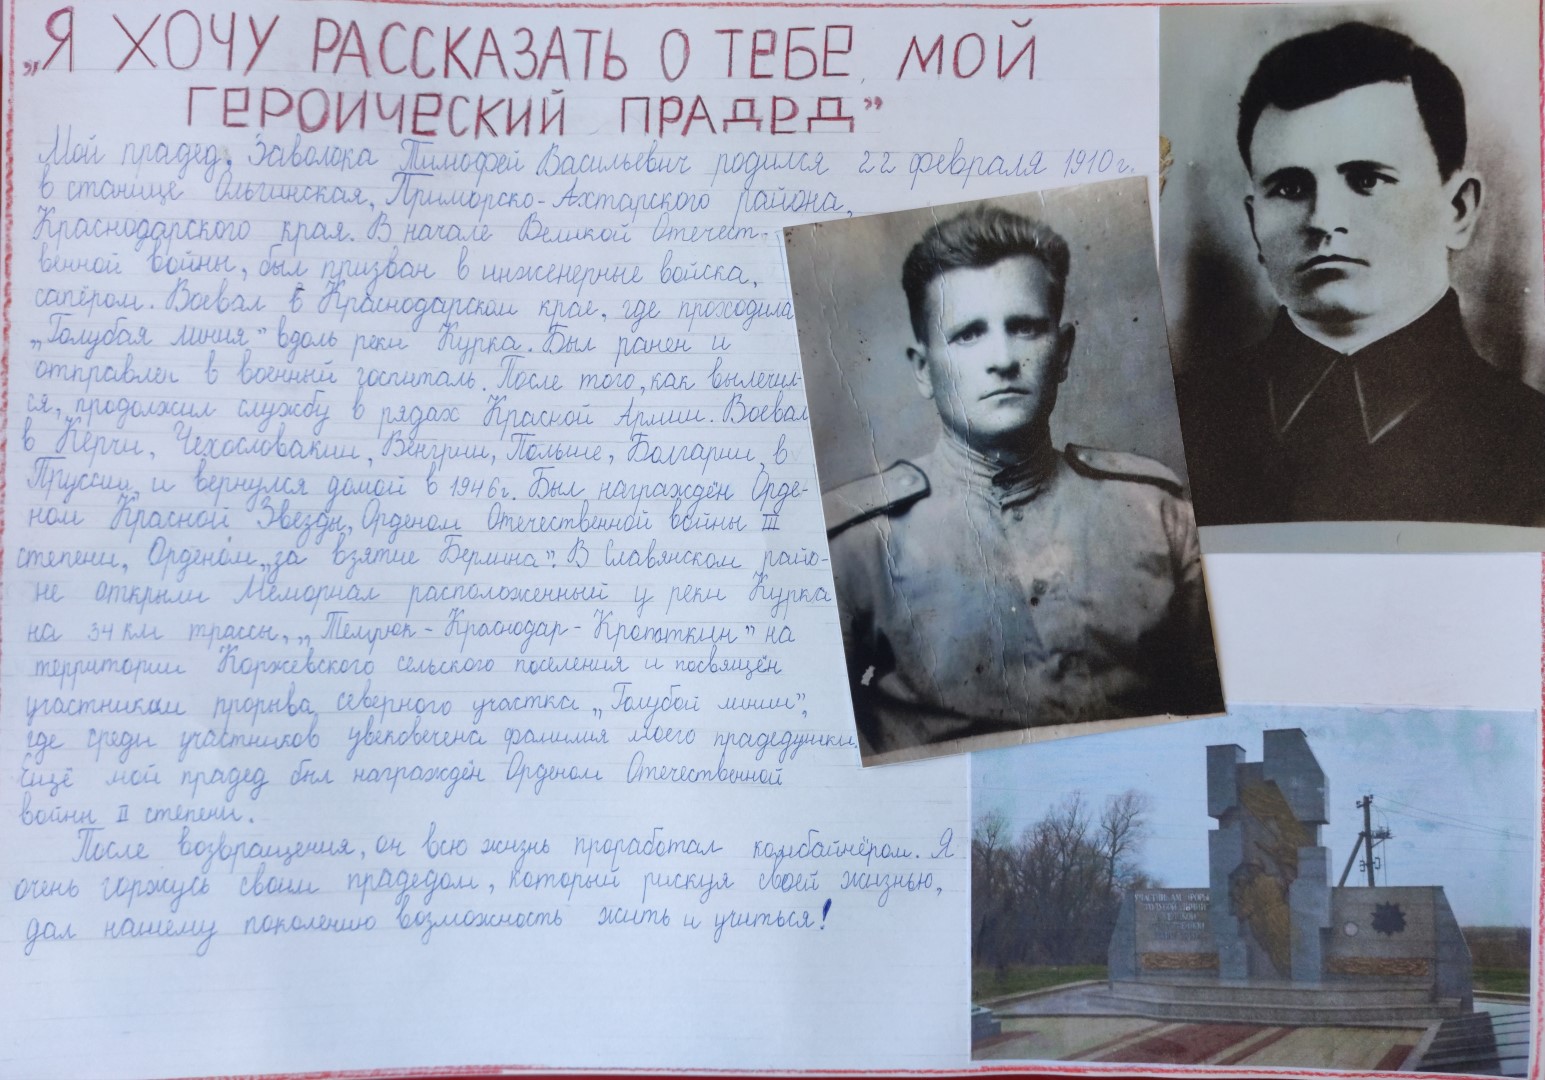 „Я ХОЧУ РАССКАЗАТЬ О ТЕБЕ, МОЙ
ГЕРОИЧЕСКИЙ ПРАДЕД”
Мой прадед, Заволока Тимофей Васильевич родился 22 февраля 1910 г.
в станице Ольгинская, Приморско-Ахтарского района,
Краснодарского края. В начале Великой Отечест-
венной войны, был призван в инженерные войска,
сапёром. Воевал в Краснодарском крае, где проходила
„Голубая линия” вдоль реки Курка. Был ранен и
отправлен в военный госпиталь. После того, как вылечил-
ся, продолжил службу в рядах Красной Армии. Воевал
в Керчи, Чехословакии, Венгрии, Польше, Болгарии, в
Пруссии и вернулся домой в 1946 г. Был награждён Орде-
ном Красной Звезды, Орденом Отечественной войны III
степени, Орденом „за взятие Берлина”. В Славянском райо-
не открыли Мемориал расположенный у реки Курка
на 34 км трассы, „Темрюк-Краснодар-Кропоткин” на
территории Коржевского сельского поселения и посвящён
участникам прорыва северного участка „Голубой линии”,
где среди участников увековечена фамилия моего прадедушки.
Ещё мой прадед был награждён Орденом Отечественной
войны II степени.
После возвращения, он всю жизнь проработал комбайнёром. Я
очень горжусь своим прадедом, который рискуя своей жизнью,
дал нашему поколению возможность жить и учиться!
УЧАСТНИКАМ